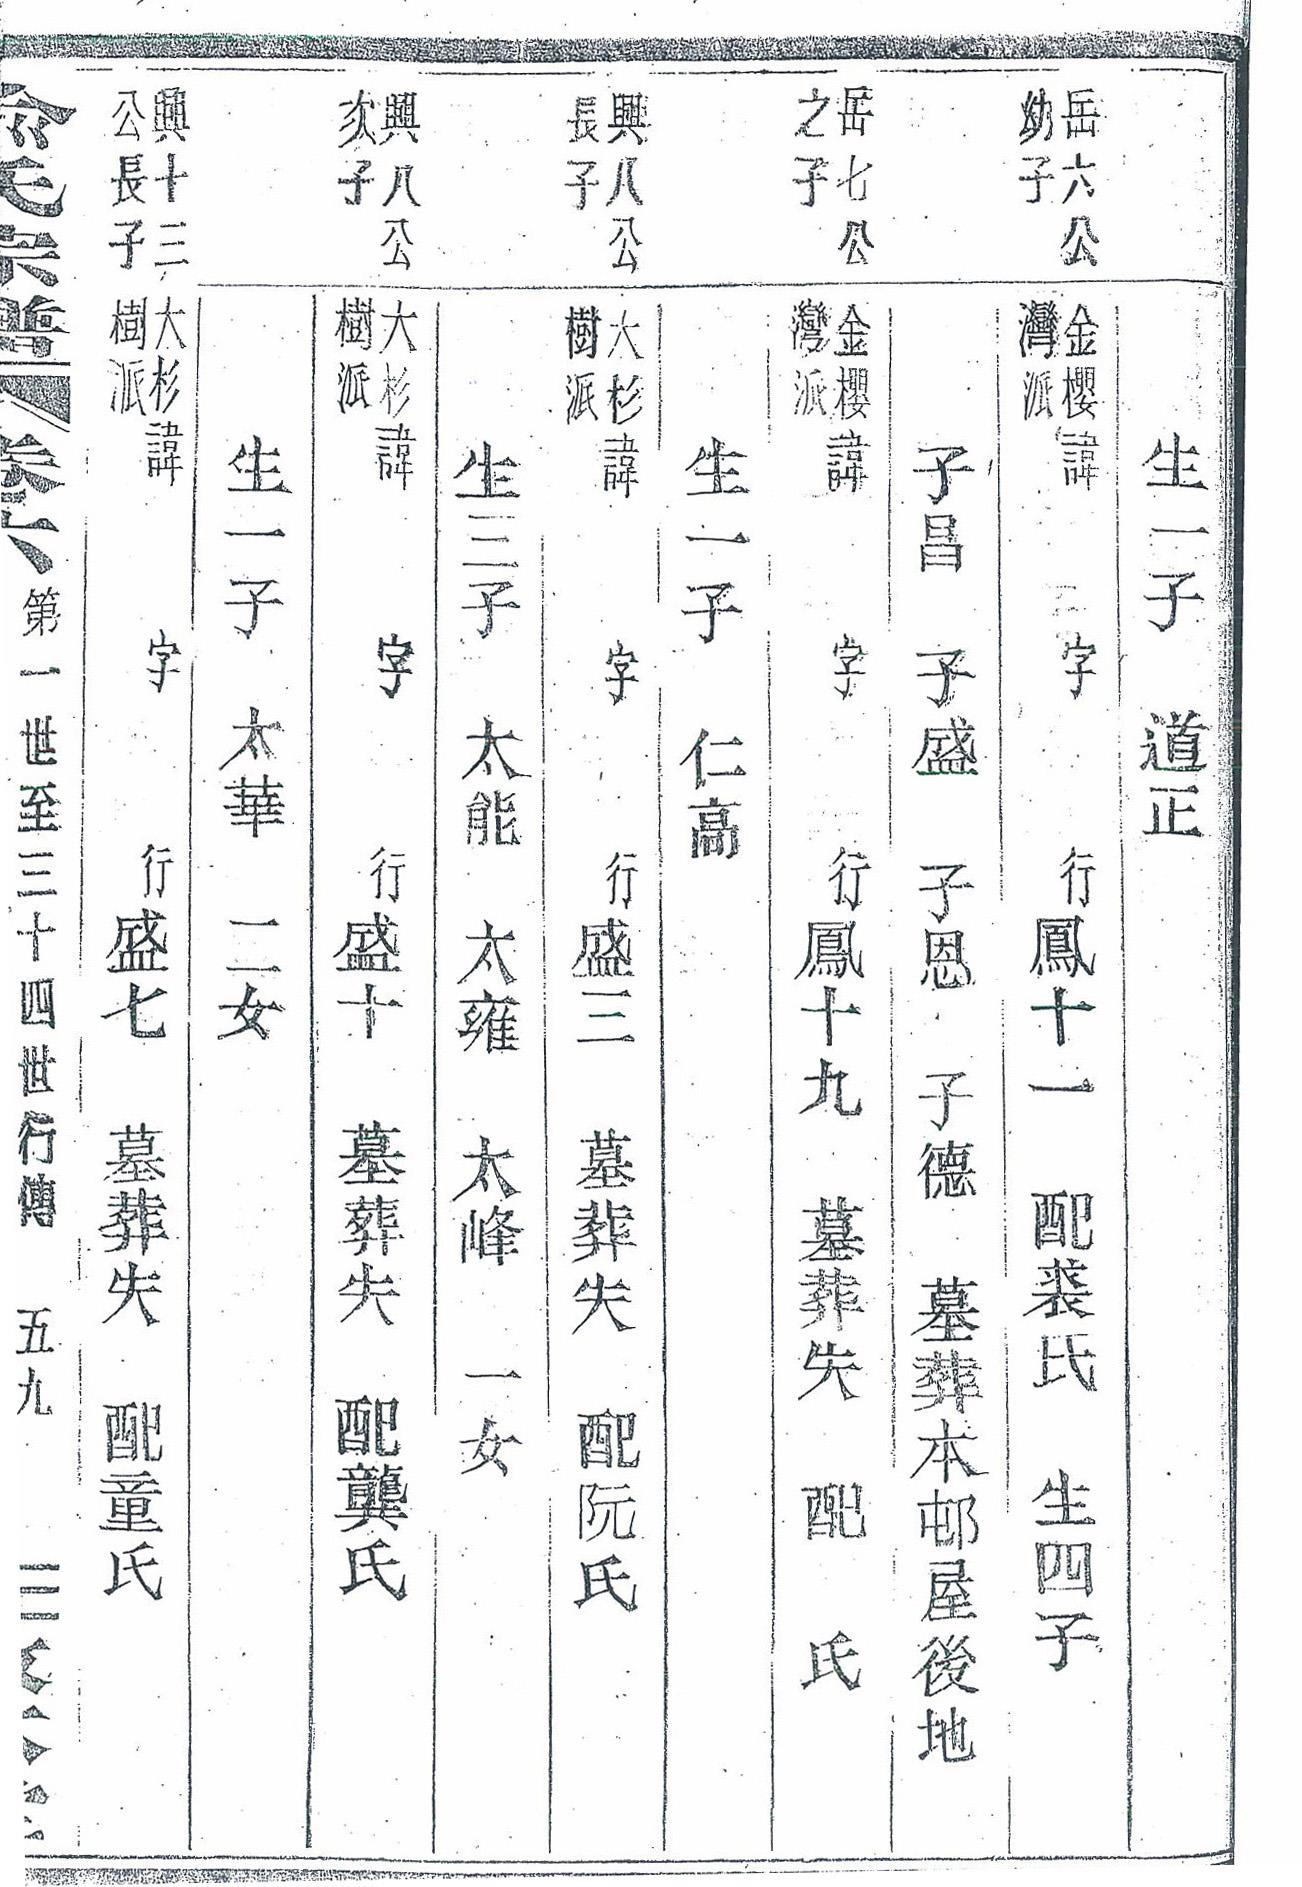 生一子 道正
岳六公幼子 金櫻灣派 諱 字 行鳳十一 配裘氏 生四子
子昌 子盛 子恩 子德 墓葬本邨屋後地
岳七公之子 金櫻灣派 諱 字 行鳳十九 墓葬失 配 氏
生一子 仁高
興八公長子 大杉樹派 諱 字 行盛三 墓葬失 配阮氏
生三子 太能 太雍 太峰 一女
興八公次子 大杉樹派 諱 字 行盛十 墓葬失 配龔氏
生一子 太華 二女
興十三公長子 大杉樹派 諱 字 行盛七 墓葬失 配童氏
俞氏宗譜 卷六 第一世至三十四世行傳 五九